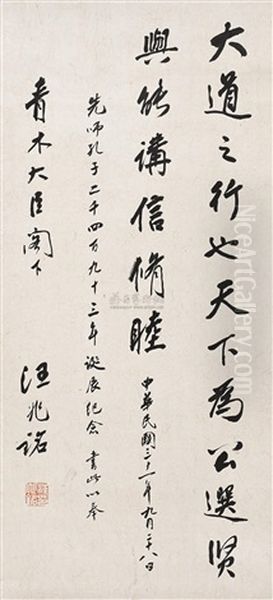 大道之行也天下為公選賢
與能講信脩睦
中華民國三十一年九月二十八日
先師孔子二千四百九十三年誕辰紀念 書此以奉
青木大臣閣下
汪兆銘
NiceArtGallery.com
NiceArtGallery.com